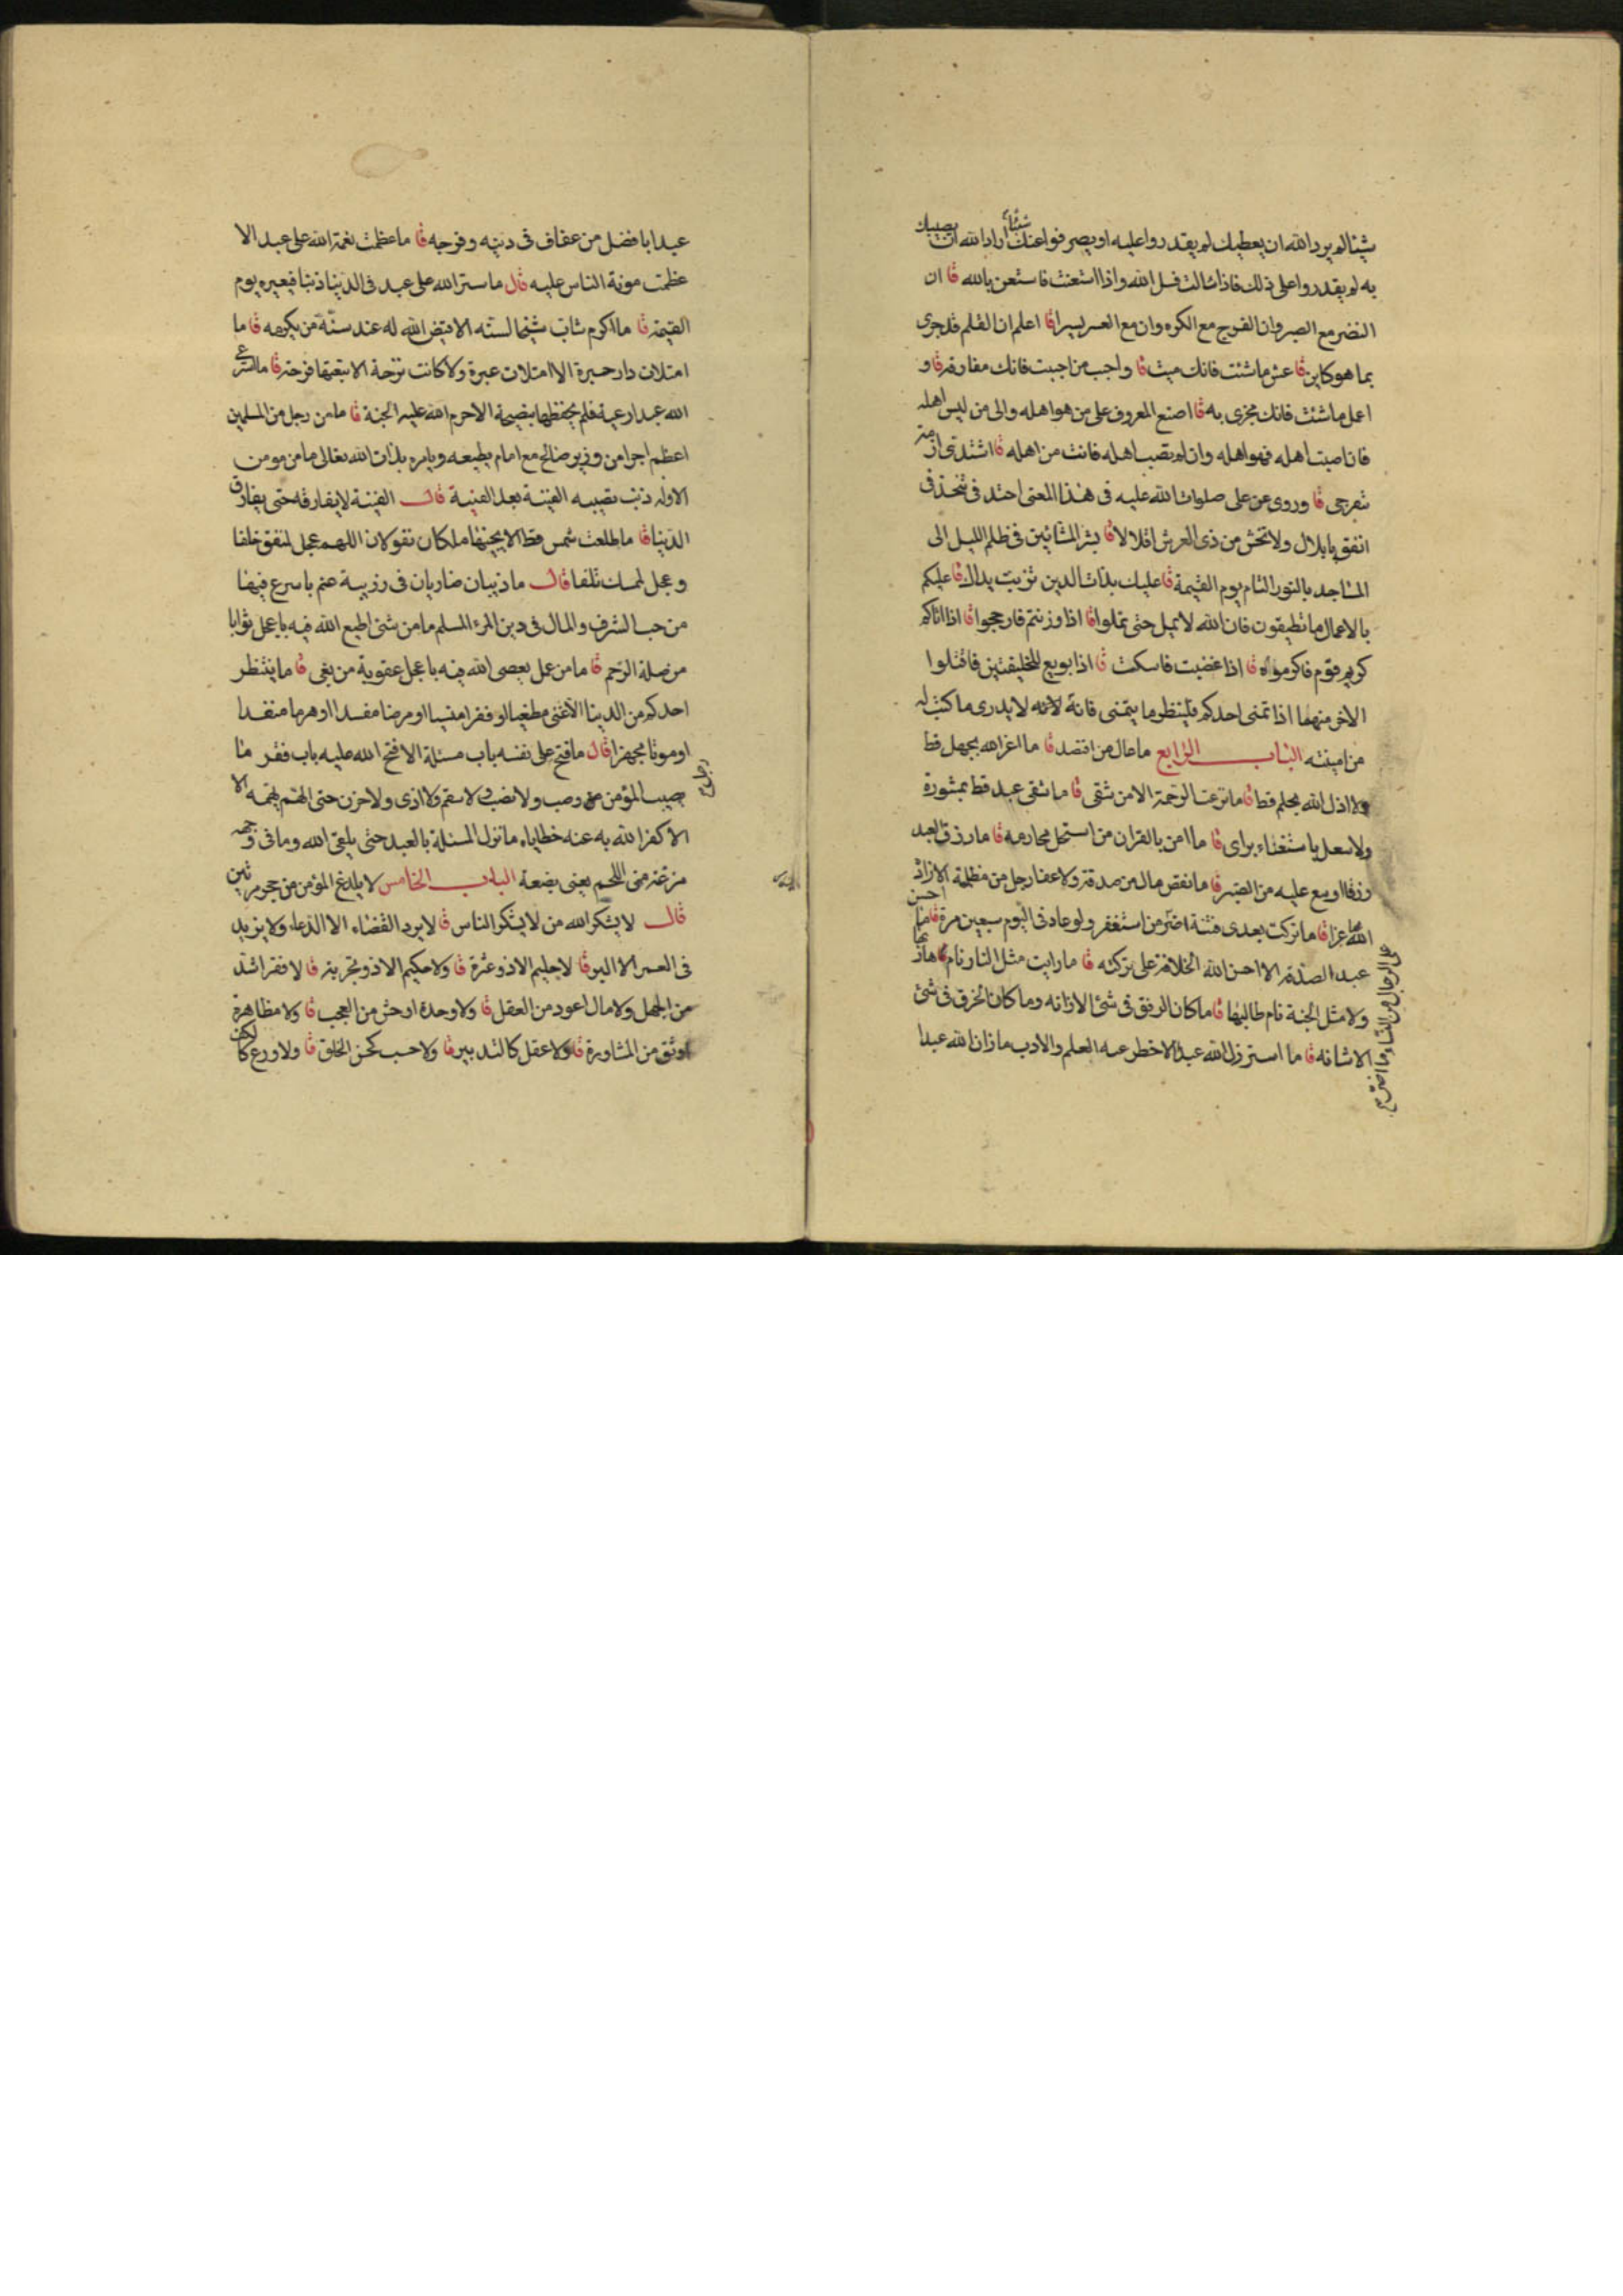 شيئا لم يرد الله ان يعطيك لم يقدروا عليه او يصرفوا عنك شيئا اراد الله ان يصيبك
به لم يقدروا على ذلك فاذا سالت فسل الله واذا استعنت فاستعن بالله قا ان
النصر مع الصبر وان الفرج مع الكره وان مع العسر يسرا قا اعلم ان القلم قد جرى
بما هو كاين قا عش ما شئت فانك ميت قا واحبب من احببت فانك مفارقه قا و
اعمل ما شئت فانك مجزى به قا اصنع المعروف على من هو اهله والى من ليس اهله
فان اصبت اهله فهو اهله وان لم تصب اهله فانت من اهله قا اشتدى ازمة
تنفرجى قا وروى عن على صلوات الله عليه فى هذا المعنى
انفق يا بلال ولا تخش من ذى العرش اقلالا قا بشر المشائين فى ظلم الليل الى
المساجد بالنور التام يوم القيمة قا عليك بذات الدين تربت يداك قا عليكم
بالاعمال ما تطيقون فان الله لا يمل حتى تملوا قا اذا وزنتم فارجحوا قا اذا اتاكم
كريم قوم فاكرموه قا اذا غضبت فاسكت قا اذا بويع للخليفتين فاقتلوا
الاخر منهما اذا تمنى احدكم فلينظر ما يتمنى فانه لا يدرى ما كتب له
من امنيته الباب الرابع ما عال من اقتصد قا ما اعز الله بجهل قط
ولا اذل الله بحلم قط قا ما نزعت الرحمة الا من شقى قا ما شقى عبد قط بمشورة
ولا سعد باستغناء براى قا ما امن بالقران من استحل محارمه قا ما رزق العبد
رزقا اوسع عليه من الصبر قا ما نقص مال من صدقة ولا عفا رجل من مظلمة الا زاد
الله بها عزا قا ما تركت بعدى فتنة اضر من استغفر ولو عاد فى اليوم سبعين مرة قا ما احسن
عبد الصدقة الا احسن الله الخلافة على تركته قا ما رايت مثل النار نام هاربها
ولا مثل الجنة نام طالبها قا ما كان الرفق فى شئ الا زانه وما كان الخرق فى شئ
الا شانه قا ما استرذل الله عبدا الا حظر عنه العلم والادب ما زان الله عبدا
على الرجال من النساء وما اصر
عبدا بافضل من عفاف فى دينه وفرجه قا ما عظمت نعمة الله على عبد الا
عظمت مونة الناس عليه قال ما ستر الله على عبد فى الدنيا ذنبا فيعيره يوم
القيمة قا ما اكرم شاب شيخا لسنه الا قيض الله له عند سنة من يكرمه قا ما
امتلات دار حبرة الا امتلات عبرة ولا كانت ترحة الا تبعتها فرحة قا ما استرعى
الله عبدا رعية فلم يحفظها بنصيحة الا حرم الله عليه الجنة قا ما من رجل من المسلمين
اعظم اجرا من وزير صالح مع امام يطيعه ويامره بذات الله تعالى ما من مومن
الا وله ذنب يصيبه الفينة بعد الفينة قال الفينة لا يفارقه حتى يفارق
الدنيا قا ما طلعت شمس قط الا بجنبها ملكان يقولان اللهم عجل لمنفق خلفا
وعجل لممسك تلفا قال ما ذيبان ضاريان فى زريبة غنم باسرع فيها
من حب الشرف والمال فى دين المرء المسلم ما من شئ اطيع الله فيه باعجل ثوابا
من صلة الرحم قا ما من عمل يعصى الله فيه باعجل عقوبة من بغى قا ما ينتظر
احدكم من الدنيا الا غنى مطغيا او فقرا منسيا او مرضا مفسدا او هرما مفندا
او موتا مجهزا قال ما فتح رجل على نفسه باب مسئلة الا فتح الله عليه باب فقر ما
يصيب المؤمن من وصب ولا نصب ولا سقم ولا اذى ولا حزن حتى الهم يهمه الا
الا كفر الله به عنه خطاياه ما تزل المسئلة بالعبد حتى يلقى الله وما فى وجهه
مزعة من اللحم يعنى بضعة الباب الخامس لا يلدغ المؤمن من جحر مرتين
قال لا يشكر الله من لا يشكر الناس قا لا يرد القضاء الا الدعاء ولا يزيد
فى العمر الا البر قا لا حليم الا ذو عثرة قا ولا حكيم الا ذو تجربة قا لا فقر اشد
من الجهل ولا مال اعود من العقل قا ولا وحدة اوحش من العجب قا ولا مظاهرة
اوثق من المشاورة قا ولا عقل كالتدبير قا ولا حسب كحسن الخلق قا ولا ورع كالكف